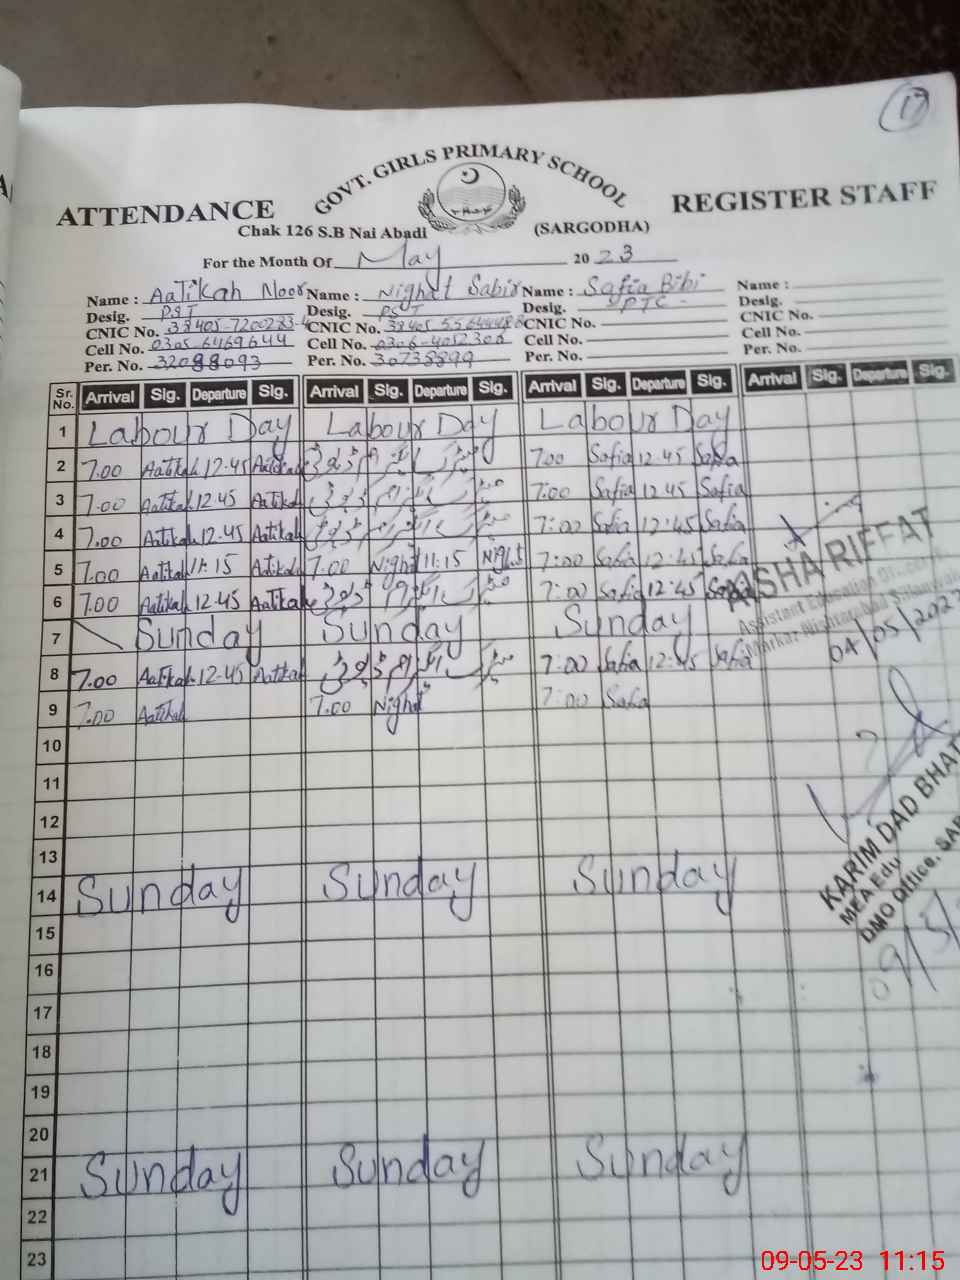 17
GOVT. GIRLS PRIMARY SCHOOL
ATTENDANCE REGISTER STAFF
Chak 126 S.B Nai Abadi (SARGODHA)
For the Month Of May 2023
Name : Aatikah Noor Name : Nighat Sabir Name : Safia Bibi Name :
Desig. PST Desig. PST Desig. PTC - Desig.
CNIC No. CNIC No. CNIC No. CNIC No.
Cell No. 0305-6469644 Cell No. 0306-4052300 Cell No. Cell No.
Per. No. 32088093 Per. No. 30738899 Per. No. Per. No.
Sr. No. Arrival Sig. Departure Sig. Arrival Sig. Departure Sig. Arrival Sig. Departure Sig. Arrival Sig. Departure Sig.
1 Labour Day Labour Day Labour Day
2 7.00 Aatikah 12.45 Aatikah 7.00 Safia 12.45 Safia
3 7.00 Aatikah 12.45 Aatikah 7:00 Safia 12.45 Safia
4 7.00 Aatikah 12.45 Aatikah 7:00 Safia 12.45 Safia
5 7.00 Aatikah 11:15 Aatikah 7.00 Nighat 11:15 Nighat 7:00 Safia 12.45 Safia
6 7.00 Aatikah 12.45 Aatikah 7:00 Safia 12.45 Safia
7 Sunday Sunday Sunday
8 7.00 Aatikah 12.45 Aatikah 7:00 Safia 12:45 Safia
9 7.00 Aatikah 7.00 Nighat 7:00 Safia
10
11
12
13
14 Sunday Sunday Sunday
15
16
17
18
19
20
21 Sunday Sunday Sunday
22
23
AISHA RIFFAT
Assistant Education
04/05/2023
KARIM DAD BHAT
MEA Edu
DMO Office. SAR
09/5/
09-05-23 11:15